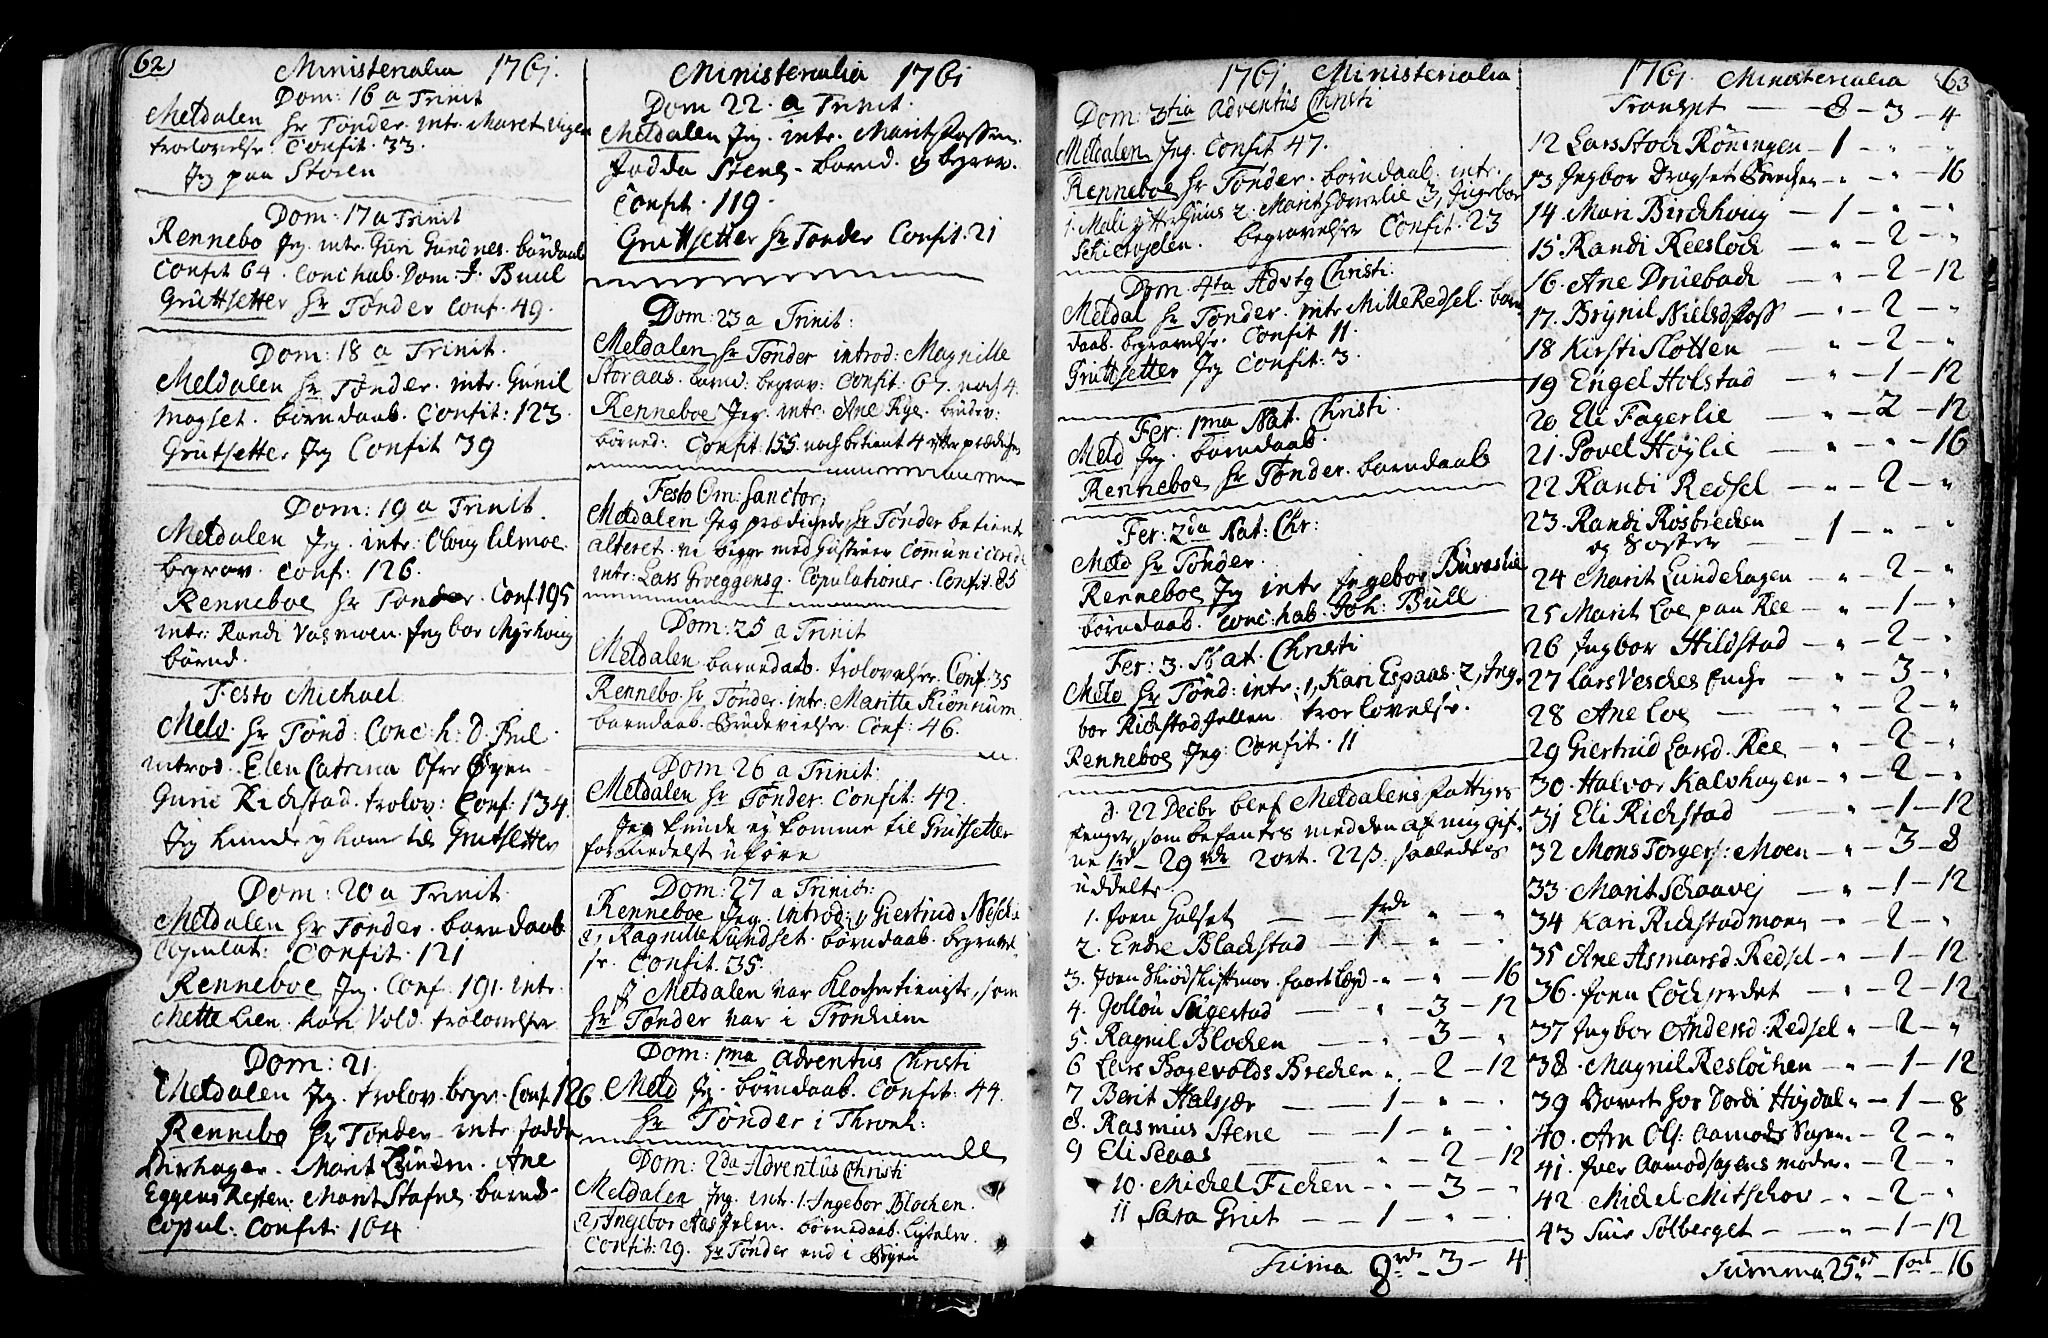 62
Ministerialia 1761.
Dom: 16 a Trinit
Meldalen Hr Tønder. intr. Maret
trolovelse. Confit. 33.
Jeg paa Støren
Dom: 17 a Trinit
Rennebo Jeg. intr. Guri Gundnes. bördaab
Confit 64. Conc: hab. Dom. J. Buul
Gruttsetter Hr Tønder Conf. 49.
Dom: 18 a Trinit.
Meldalen Hr Tønder. intr. Gunil
Magset. börndaab. Confit: 123.
Grutsetter Jeg Confit 39
Dom: 19 a Trinit.
Meldalen Jeg. intr:
begrav. Conf: 126.
Renneboe Hr Tønder. Conf 195
intr: Randi Vasmoen. Jngbor Myrhoug
börnd.
Festo Michael
Meld. Hr Tønd: Conc: h: D. Bul
introd. Elen Catrina Öfre Øyen
Gurie Rickstad. trolov: Conf: 134
Jeg kunde ey kome til Grutsetter
Dom: 20 a Trinit.
Meldalen Hr Tønder. barndaab
Copulat: Confit: 121
Renneboe Jeg. Conf: 191. intr.
Mette Lien. Kari Vold. trolovelser
Dom: 21.
Meldalen Jeg. trolov. begr. Conf. 126.
Rennebo Hr Tønder. intr. Jødda
Marit Lunden. Ane
Eggens Resten. Marit Stafnes. barnd.
Copul: Confit: 104
Ministerialia 1761
Dom 22. a Trinit.
Meldalen Jeg. intr. Marit
Jødda Stene. barnd. og begrav.
Confit. 119.
Gruttsetter Hr Tønder Confit. 21
Dom: 23 a Trinit:
Meldalen Hr Tønder introd: Magnille
Storaas. barnd: begrav: Confit: 67. noch 4.
Renneboe Jeg. intr. Ane Rye. brudev:
börned: Confit. 155. noch betient 4
Festo Om: Sanctor:
Meldalen Jeg prædigede, Hr Tønder betiente
alteret. vi begge med Hustruer Communicerede
intr: Lars Copulationer. Confit: 85
Dom: 25 a Trinit
Meldalen. barnedaab. trolovelser. Conf. 35
Rennebo. Hr Tønder. intr. Maritte
barndaab. Brudevielser. Conf: 46.
Dom 26 a Trinit:
Meldalen Hr Tønder. Confit: 42.
Jeg kunde ey komme til Grutsetter
formedelst uföre
Dom: 27 a Trinit:
Renneboe Jeg. introd: 1, Giertrud
2, Ragnilla Sundset. börndaab. begravel-
se. Confit. 35.
J Meldalen var Klockertieniste, som
Hr Tønder var i Tronhiem
Dom: 1ma Adventus Christi
Meld Jeg. börndaab. Confit: 44.
Hr Tønder i Thronh:
Dom: 2da Adventus Christi
Meldalen Jeg. intr. 1. Ingebor Blochen.
2, Ingebor Aas Jelen. börnedaab.
Confit: 29. Hr Tønder
1761 Ministerialia
Dom: 3tia adventus Christi
Meldalen Jeg. Confit 47.
Renneboe Hr Tønder. börndaab. intr.
1. Mali 2. Marit 3, Jngebor
begravelser Confit. 23
Dom. 4ta Advtg Christi.
Meldal Hr Tønder. intr Mille Redsel. barn
daab. begravelse. Confit 11.
Gruttsetter Jeg Confit: 3.
Fer: 1ma Nat. Christi.
Meld Jeg. barndaab.
Renneboe Hr Tønder. barndaab
Fer: 2da Nat: Chr:
Meld Hr Tønder.
Renneboe Jeg intr Ingebor
börndaab. Conc: hab. Joh: Bull.
Fer: 3. Nat. Christi
Meld Hr Tønd: intr: 1, Kari Espaas. 2, Jng-
bor Rickstad Jellen. troelovelse.
Renneboe Jeg: Confit. 11
d. 22 Decbr blef Meldalens Fattiges
Penger, som befantes med den af mig Gif-
ne 29 rde 2 ort. 22 ß. saaledes
uddelte.
1. Joen Halset — 1 rde " "
2. Endre Blackstad — 1 — " — "
3. Joen " — " — 16
4. Gollou Sugestad — " — 3 — 12
5. Ragnil Blochen — " — 3 — "
6 Lars Bredien " — 2 — 12
7 Berit Halsjær — 1 — " — "
8. Rasmus Stene — 1 — " — "
9 Eli Seaas — " — 2 — 12
10. Michel Ficken — " — 3 — "
11 Sara Griit — 1 — " — "
Suma 8 rd — 3 — 4
1761. Ministerialia 63
Transpt — 8 — 3 — 4
12 Lars Stock Rönningen — 1 — " — "
13 Jngbor Dragset " — " — 16
14. Mari Birckhoug — 1 — " — "
15. Randi Reeslock — " — 2 — "
16. Ane Druebach — " — 2 — 12
17. Brynil Nielsd — " — 2 — "
18 Kirsti Slotten — " — 2 — "
19 Engel Holstad — " — 1 — 12
20 Eli Fagerlie — " — 2 — 12
21. Povel Høylie " — " — 16
22 Randi Redsel — " — 2 — "
23. Randi Rösbrecken
og Søster — 1 — " — "
24 Marit Lundehagen — " — 2 — "
25 Marit Loe paa Ree — " — 1 — "
26 Jngbor Hildstad — " — 2 — "
27 Lars Vesches Encke — " — 3 — "
28 Ane Loe — " — 2 — "
29 Giertrud Larsd. Ree — " — 2 — "
30. Halvor Kalvhagen — " — 2 — "
31 Eli Rickstad — " — 1 — 12
32 Mons Torgers: Moen — " — 3 — 8
33. Marit — " — 1 — 12
34 Kari Rickstadmoen — " — 2 — "
35 Ane Asmarsd. Redsel — " — 1 — 12
36. Joen — " — 2 — 12
37 Jngbor Andersd. Redsel " — 2 — "
38. Magnil Reslöchen — " — 1 — 12
39 hos Dordi Høgdal " — 1 — 8
40. Arn Ols: Aamods — 2 — "
41. Joer Aamodsagens moder " — 2 — "
42 Michel Mitschov — " — 2 — "
43 Solberget — " — 1 — 12
Summa 25 rd — 1 ort — 16